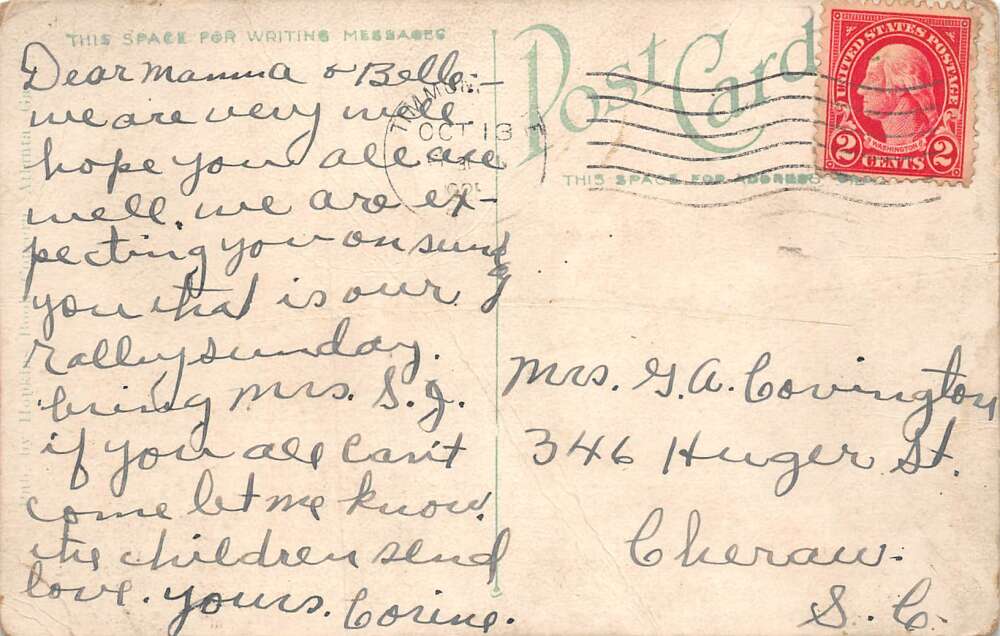 THIS SPACE FOR WRITING MESSAGES
Dear Mamma & Belle:—
we are very well.
hope you all are
well. we are ex-
pecting you on sund
you that is our
rally sunday.
bring Mrs. S. J.
if you all can't
come let me know.
the children send
love. yours. Corine.
Post Card
THIS SPACE FOR ADDRESS ONLY
OCT 13
UNITED STATES POSTAGE
WASHINGTON
2 CENTS 2
Mrs. G. A. Covington
346 Huger St.
Cheraw.
S. C.